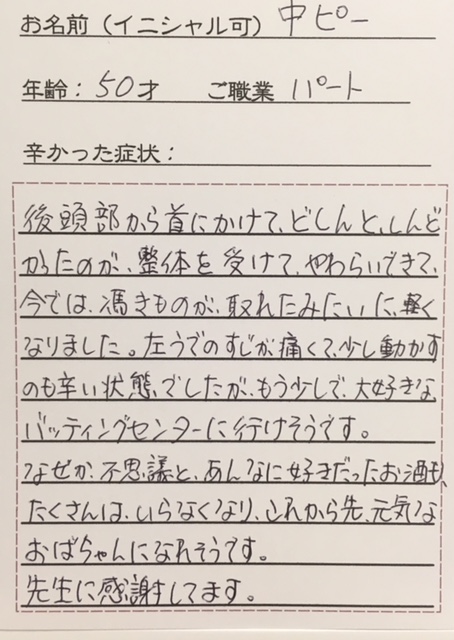 お名前（イニシャル可）中ピー
年齢：50才　ご職業 パート
辛かった症状：
後頭部から首にかけて、どしんと、しんど
かったのが、整体を受けて、やわらいできて、
今では、憑きものが、取れたみたいに、軽く
なりました。左うでのすじが痛くて、少し動かす
のも辛い状態でしたが、もう少しで、大好きな
バッティングセンターに行けそうです。
なぜか、不思議と、あんなに好きだったお酒も、
たくさんは、いらなくなり、これから先、元気な
おばちゃんになれそうです。
先生に感謝してます。